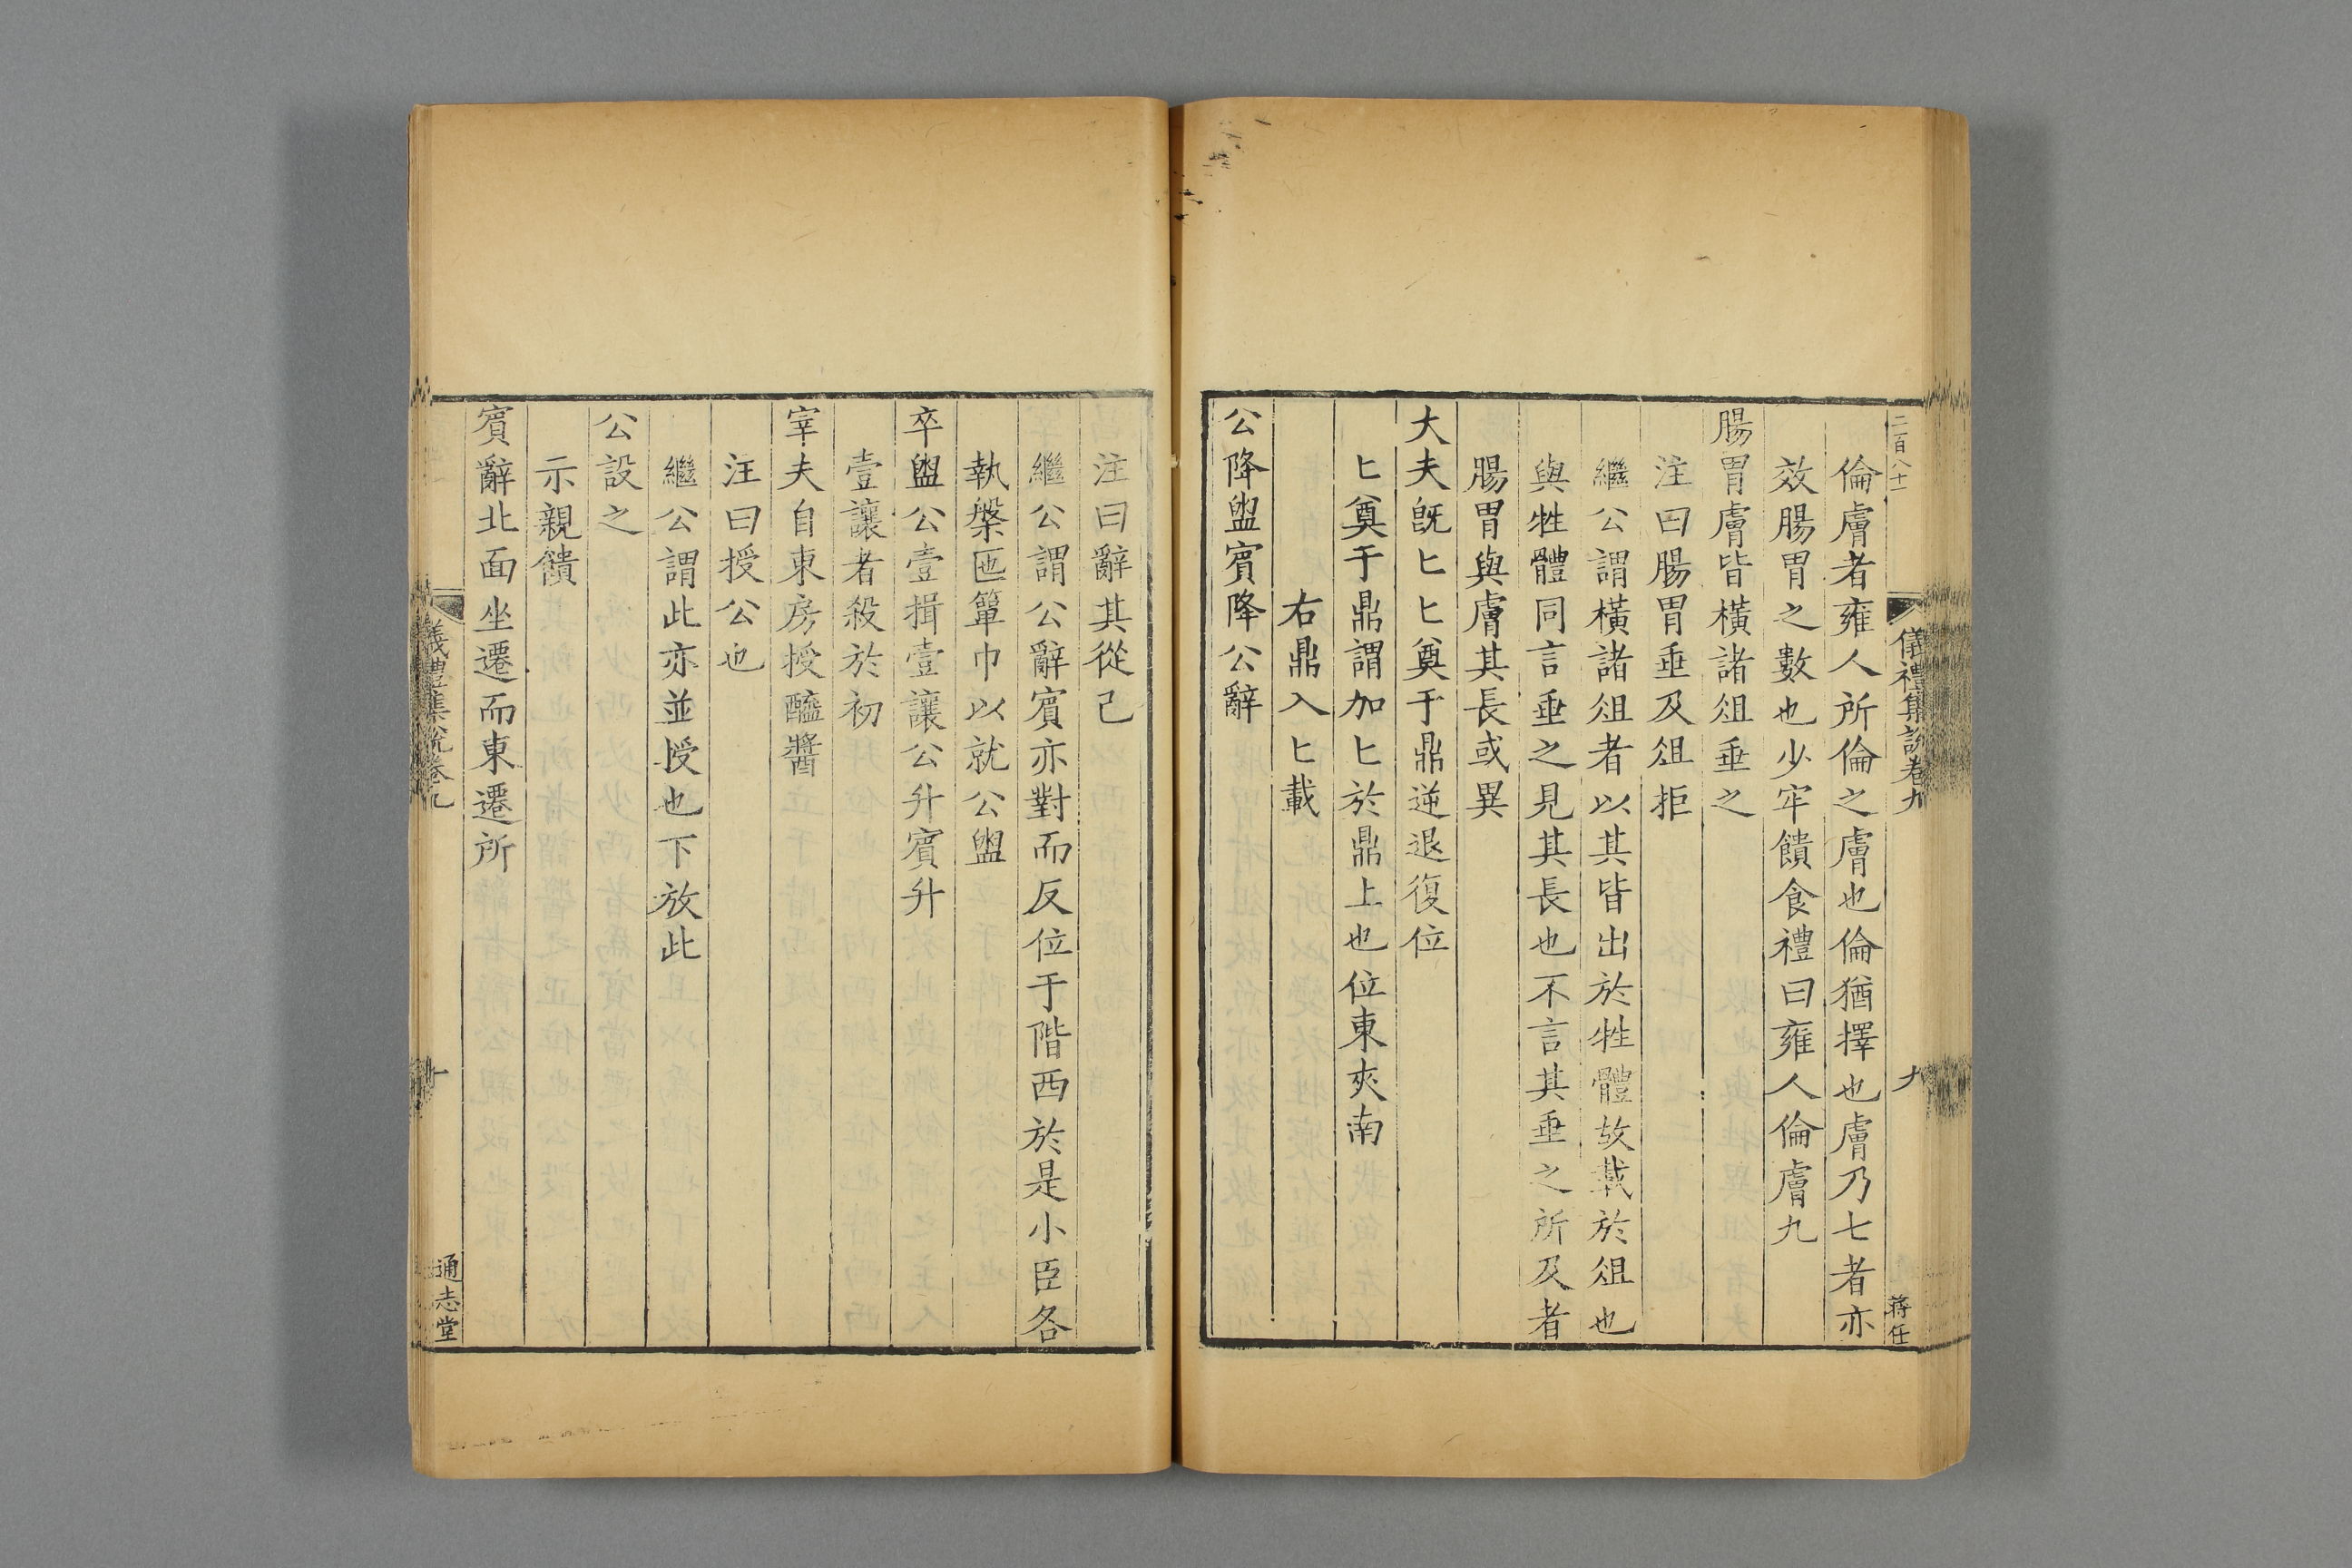 二百八十一
儀禮集說卷九
九
蔣任
倫膚者雍人所倫之膚也倫猶擇也膚乃七者亦
效腸胃之數也少牢饋食禮曰雍人倫膚九
腸胃膚皆橫諸俎垂之
注曰腸胃垂及俎拒
繼公謂橫諸俎者以其皆出於牲體故載於俎也
與牲體同言垂之見其長也不言其垂之所及者
腸胃與膚其長或異
大夫旣匕匕奠于鼎逆退復位
匕奠于鼎謂加匕於鼎上也位東夾南
右鼎入匕載
公降盥賓降公辭
注曰辭其從己
繼公謂公辭賓亦對而反位于階西於是小臣各
執槃匜簞巾以就公盥
卒盥公壹揖壹讓公升賓升
壹讓者殺於初
宰夫自東房授醯醬
注曰授公也
繼公謂此亦並授也下放此
公設之
示親饋
賓辭北面坐遷而東遷所
儀禮集說卷九
十
通志堂